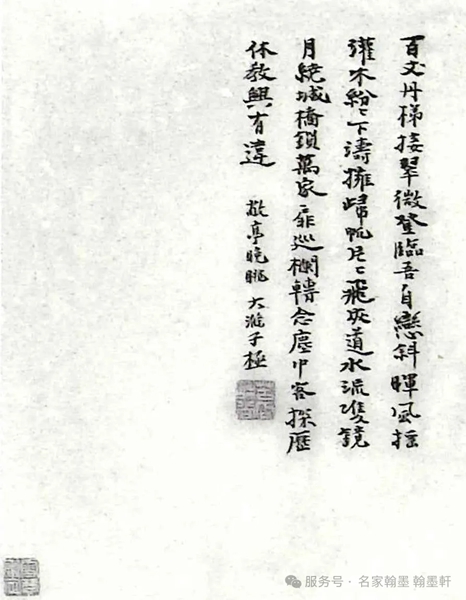 百丈丹梯接翠微登臨吾自戀斜暉風搖
灌木紛〻下濤擁歸帆片〻飛夾道水流雙鏡
月繞城橋鎖萬家扉巡欄轉念塵中客探歷
休教興有違 敬亭晚眺 大滌子極
服务号 · 名家翰墨 翰墨軒